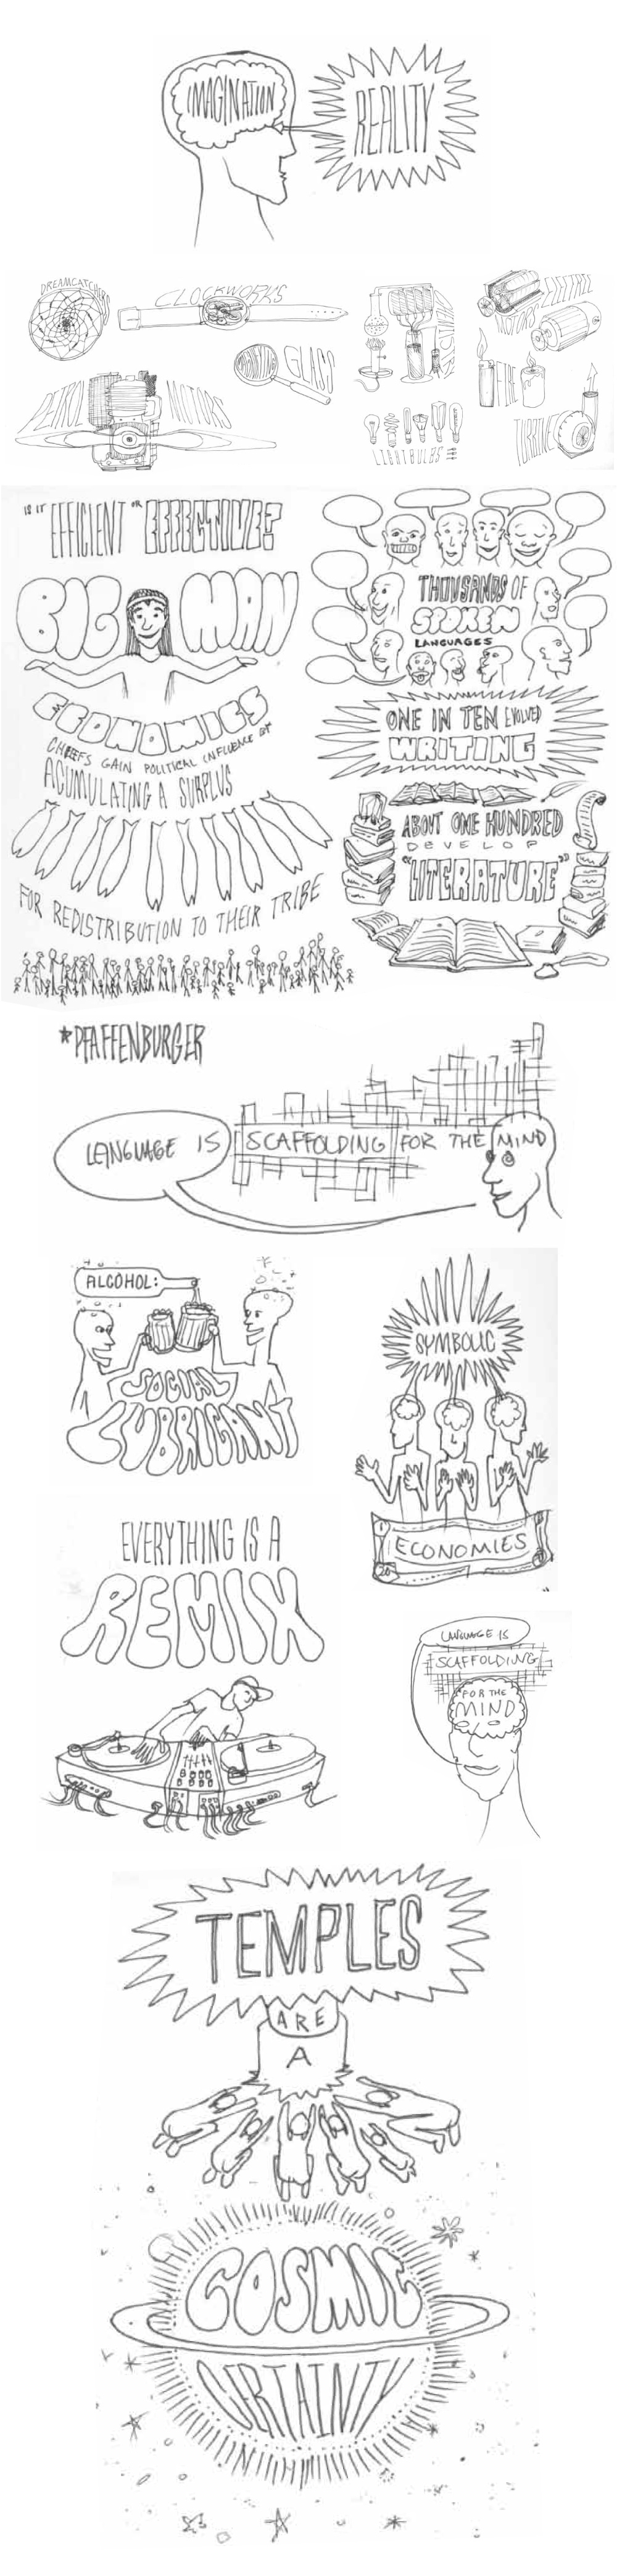 IMAGINATION
REALITY
DREAMCATCHERS
CLOCKWORKS
GLASS
ELECTRIC
MOTORS
FIRE
PETROL
MOTORS
LIGHTBULBS
TURBINE
IS IT "EFFICIENT" OR EFFECTIVE?
BIG MAN
ECONOMICS
CHIEFS GAIN POLITICAL INFLUENCE BY
ACUMULATING A SURPLUS
FOR REDISTRIBUTION TO THEIR TRIBE
THOUSANDS OF
SPOKEN
LANGUAGES
ONE IN TEN EVOLVED
WRITING
ABOUT ONE HUNDRED
DEVELOP
"LITERATURE"
*PFAFFENBURGER
LANGUAGE IS SCAFFOLDING FOR THE MIND
ALCOHOL:
SOCIAL
LUBRICANT
SYMBOLIC
ECONOMIES
20
EVERYTHING IS A
REMIX
LANGUAGE IS
SCAFFOLDING
FOR THE
MIND
TEMPLES
ARE
A
COSMIC
CERTAINTY